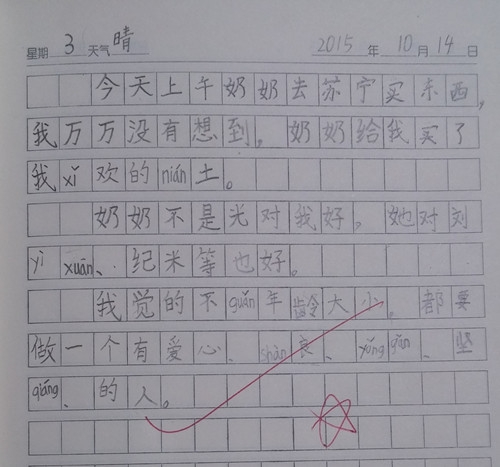 星期 3 天气 晴 2015 年 10 月 14 日
今天上午奶奶去苏宁买东西,
我万万没有想到,奶奶给我买了
我xǐ欢的nián土。
奶奶不是光对我好,她对刘
yì xuān、纪米等也好。
我觉的不guǎn年龄大小。都要
做一个有爱心、shàn良、yǒng gǎn、坚
qiáng、的人。